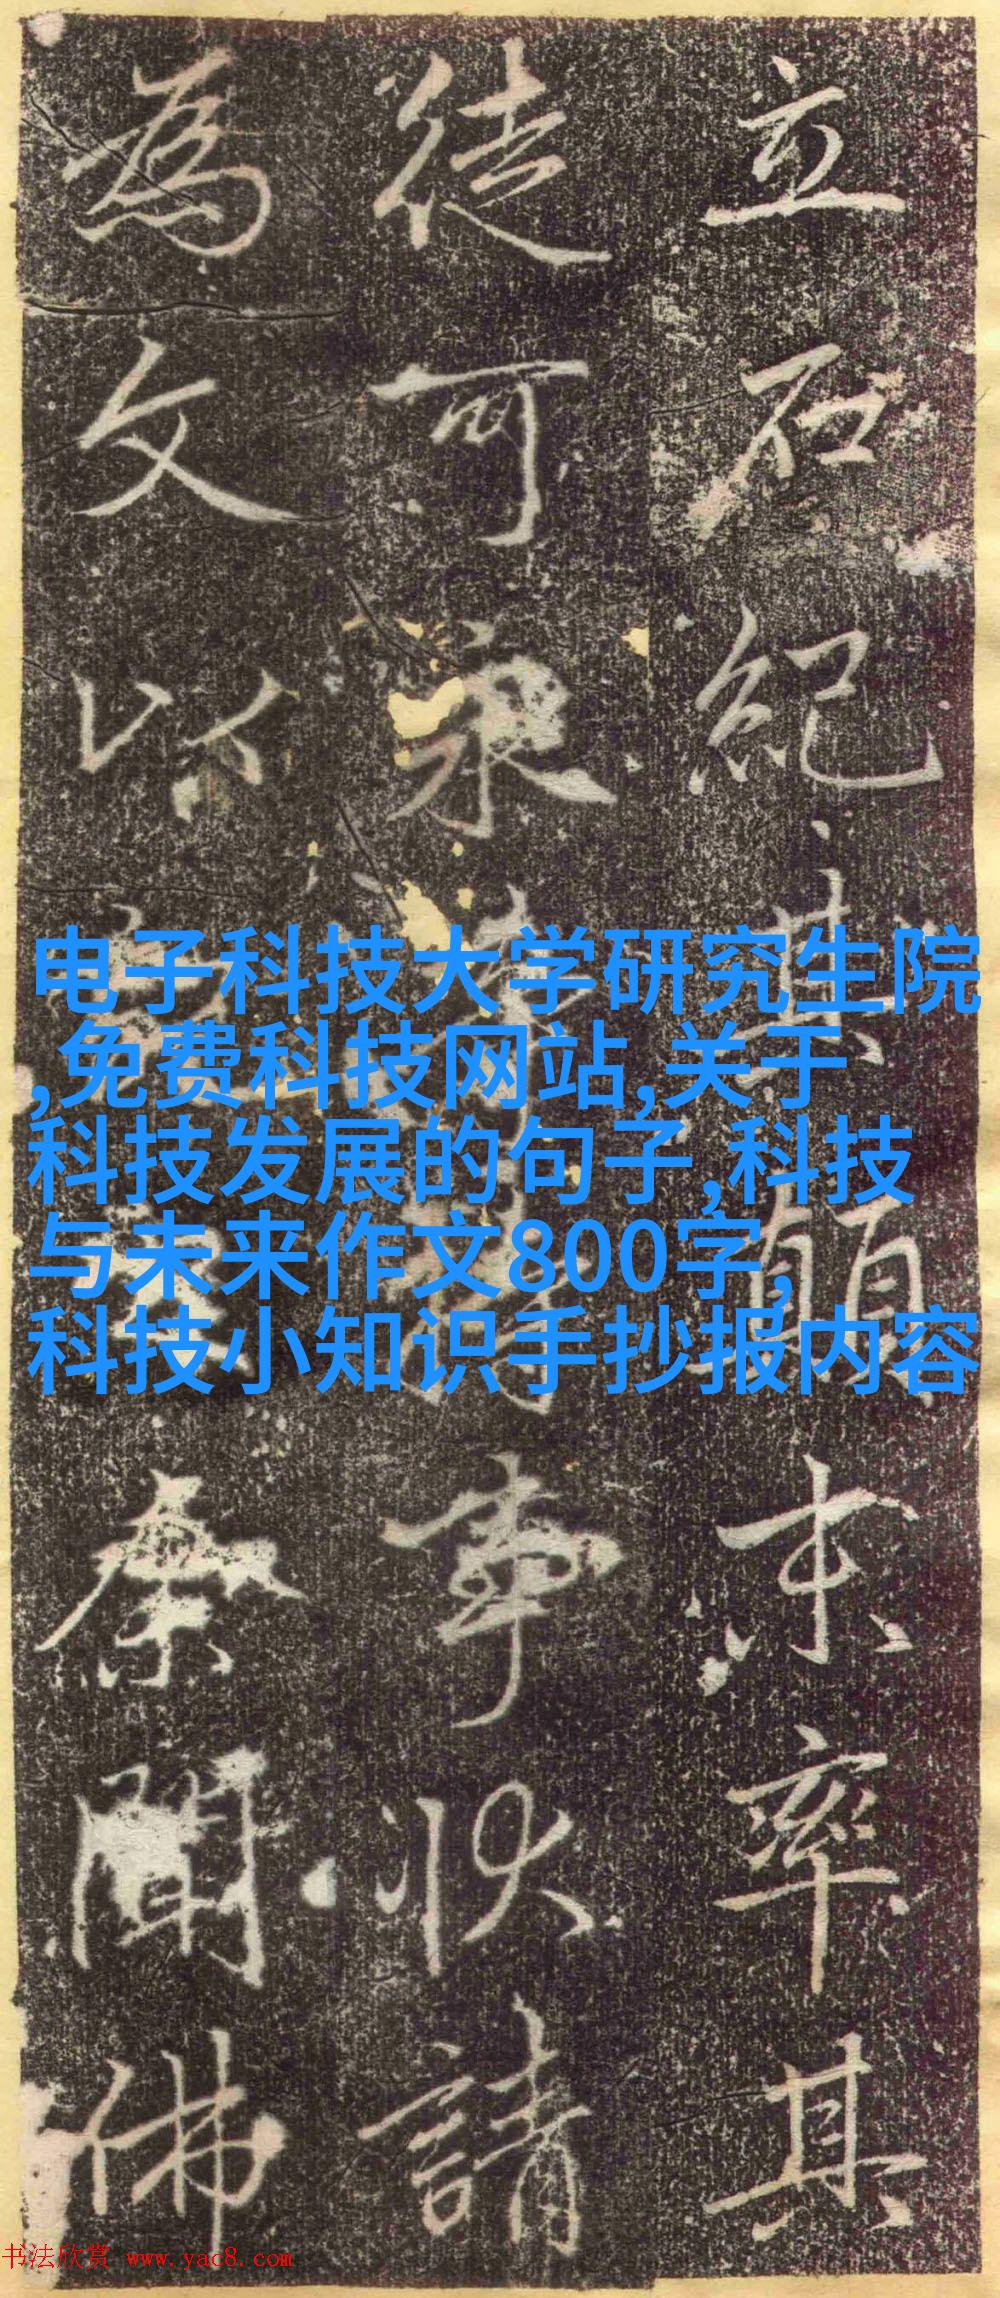 立石紀其顛末率其
徒可永事狀請
為文以余聞佛
电子科技大学研究生院
,免费科技网站,关于
科技发展的句子,科技
与未来作文800字,
科技小知识手抄报内容
书法欣赏 www.yac8.com